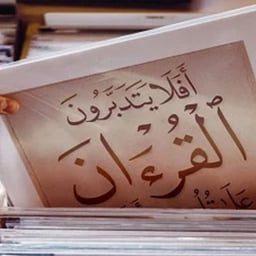 أَفَلَا يَتَدَبَّرُونَ
الْقُرْءَانَ